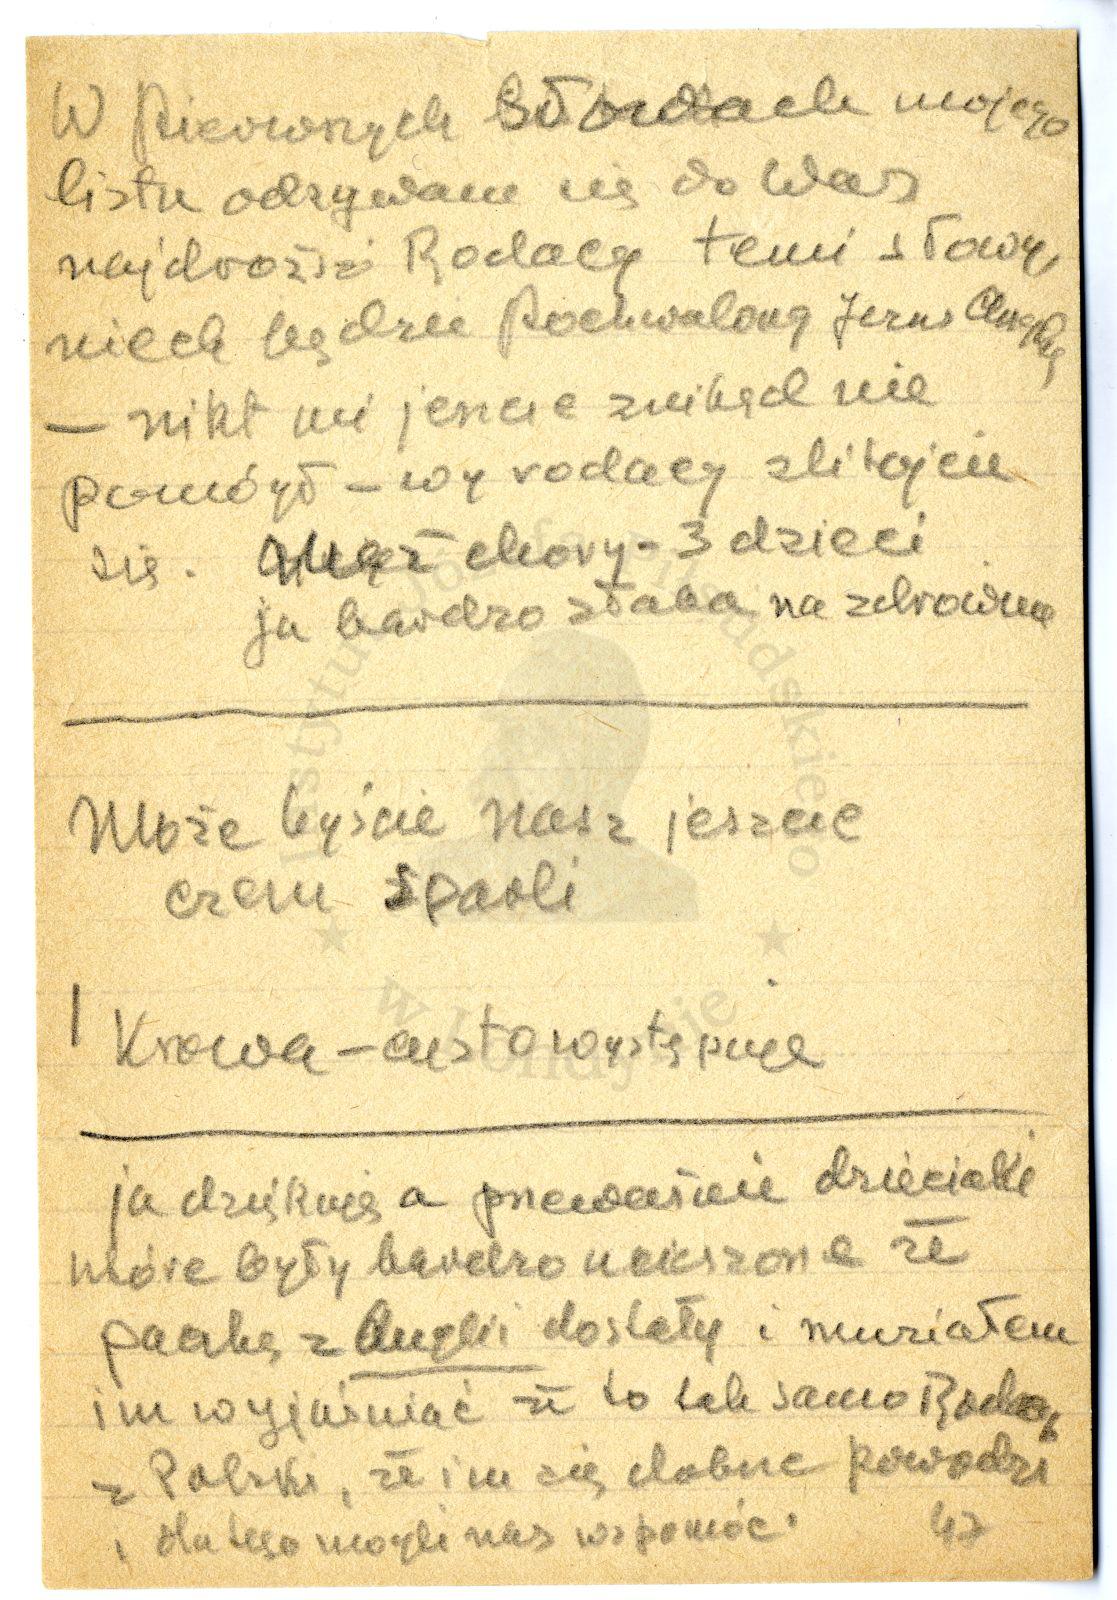 W pierwszych słowach mojego
listu odzywam się do Was
najdrożsi Rodacy temi słowy,
niech będzie Pochwalony Jezus Chrystus
— nikt mi jeszcze znikąd nie
pomógł – wy rodacy zlitujcie
się. Mąż chory – 3 dzieci
ja bardzo słaba na zdrowiu
Może byście nasz jeszcze
czem sparli
Krowa – często występuje
ja dziękuję a przeważnie dzieciaki
które były bardzo ucieszone że
paczkę z Anglii dostały i musiałem
im wyjaśniać że to tak samo Rodacy
z Polski, że im się dobrze powodzi
i dlatego mogli nas wspomóc.
47
Instytut Józefa Piłsudskiego
w Londynie